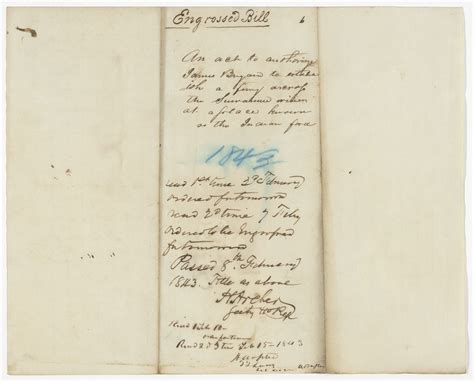 Engrossed Bill 6
An act to authorize
James Bryant to establ
ish a ferry across
the Suwannee river
at a place known
as the Indian ford
1843
read 1st time 3d February
ordered for tomorrow
read 2d time 7 Feby
ordered to be Engrossed
for tomorrow
Passed 8th February
1843. Title as above
H Archer
for tomorrow
Read 2d 3 time Feb 15th 1843